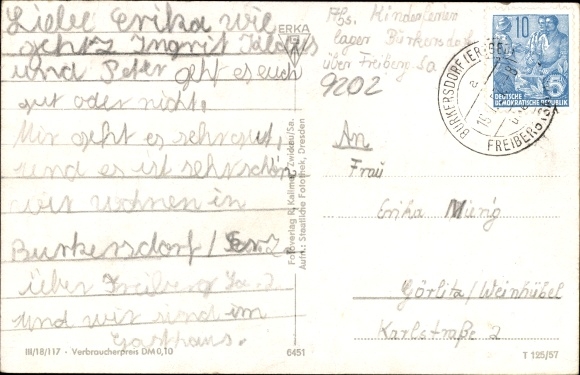 Liebe Erika wie
geht Ingrid
und Peter geht es euch
gut oder nicht.
Mir geht es sehr gut,
und es ist sehr schön
wir wohnen in
Burkersdorf / Erz.
über Freiberg Sa.
und wir sind im
Gasthaus.
III/18/117 · Verbraucherpreis DM 0,10
6451
ERKA
Fotoverlag R. Kallmer, Zwickau/Sa.
Aufn.: Staatliche Fotothek, Dresden
Abs. Kinderferien
lager Burkersdorf
über Freiberg Sa
9202
10
DEUTSCHE
DEMOKRATISCHE REPUBLIK
BURKERSDORF (ERZGEB)
FREIBERG (SACHS)
An
Frau
Erika
Görlitz/Weinhübel
Karlstraße 2
T 125/57